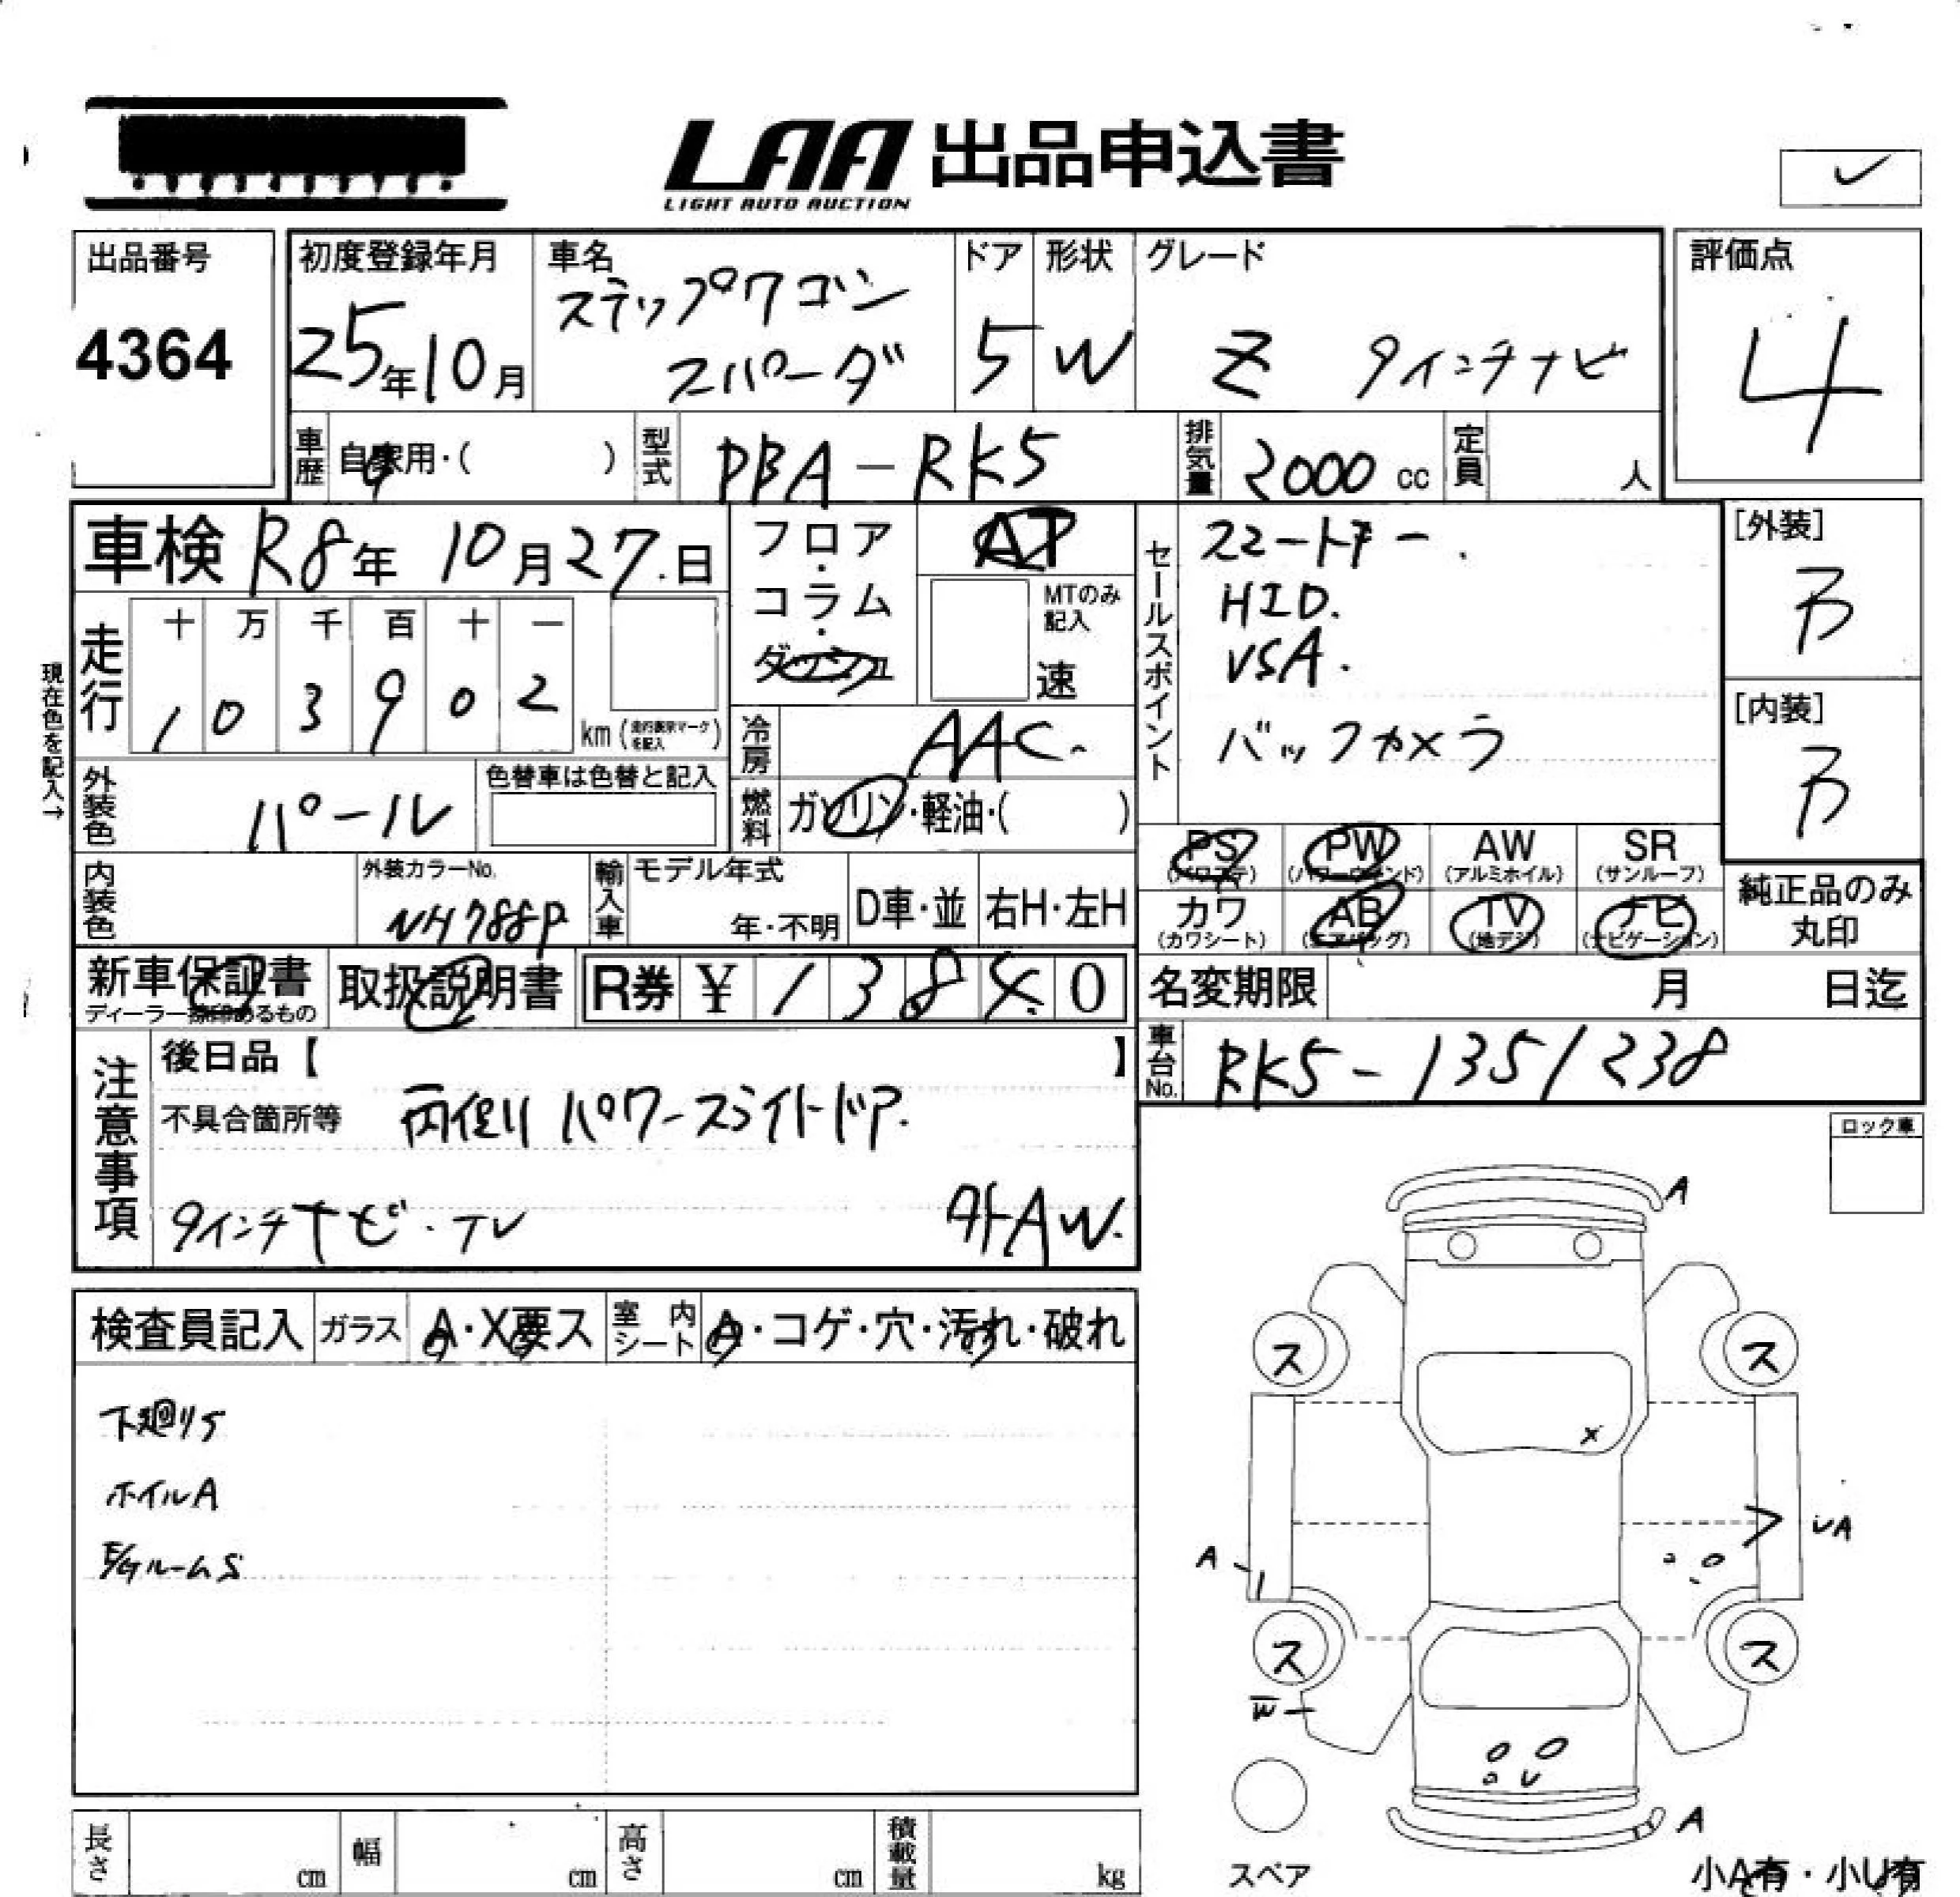 LAA 出品申込書
LIGHT AUTO AUCTION
出品番号
4364
初度登録年月
25年10月
車名
ステップワゴン
スパーダ
ドア
5
形状
W
グレード
Z 9インチナビ
評価点
4
車歴
自家用・( )
型式
DBA-RK5
排気量
2000 cc
定員
人
車検 R8年 10月27日
走行
十 万 千 百 十 一
1 0 3 9 0 2
km(走行表示マークを記入)
現在色を記入→
フロア・コラム・ダッシュ
AT
MTのみ記入
速
冷房
AAC
燃料
ガソリン・軽油・( )
セールスポイント
スマートキー.
HID.
VSA.
バックカメラ
[外装]
B
[内装]
B
外装色
パール
色替車は色替と記入
内装色
外装カラーNo.
NH788P
輸入車
モデル年式
年・不明
D車・並
右H・左H
PS (パワステ)
PW (パワーウィンド)
AW (アルミホイル)
SR (サンルーフ)
カワ (カワシート)
AB (エアバッグ)
TV (地デジ)
ナビ (ナビゲーション)
純正品のみ
丸印
新車保証書
ディーラー捺印あるもの
取扱説明書
R券 ¥ 1 3 8 4 0
名変期限
月 日迄
車台No.
RK5-1351238
注意事項
後日品【 】
不具合箇所等
両側パワースライドドア.
9インチナビ・TV
外AW.
ロック車
検査員記入
ガラス
A・X要ス
室内シート
A・コゲ・穴・汚れ・破れ
下廻りS
ホイルA
E/GルームS
A
ス ス
X
A
UA
ス ス
W
A
スペア
長さ cm
幅 cm
高さ cm
積載量 kg
小A有・小U有